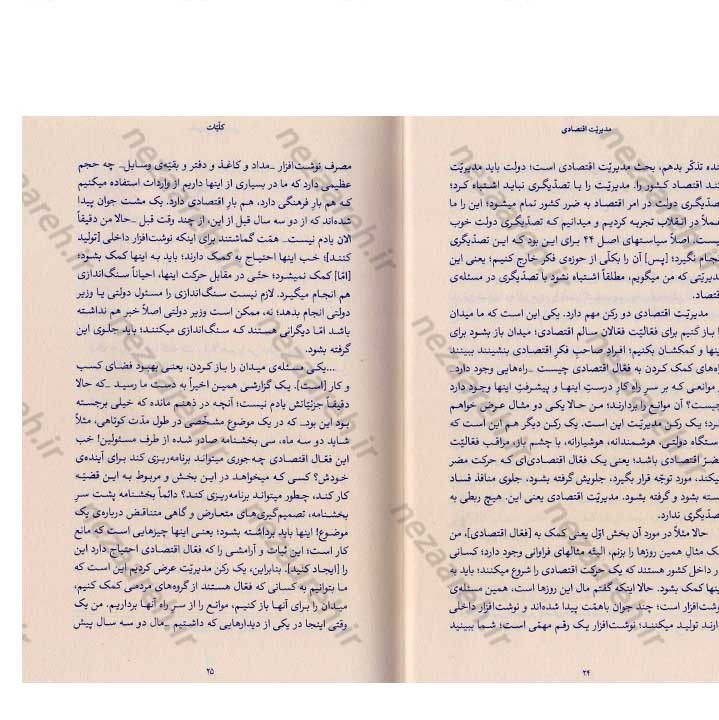 مدیریّت اقتصادی
تذکّر بدهم، بحث مدیریّت اقتصادی است؛ دولت باید مدیریّت
اقتصاد کشور را. مدیریّت را با تصدّیگری نباید اشتباه کرد؛
تصدّیگری دولت در امر اقتصاد به ضرر کشور تمام میشود؛ این را ما
در انقلاب تجربه کردیم و میدانیم که تصدّیگری دولت خوب
اصلاً سیاستهای اصل ۴۴ برای این بود که این تصدّیگری
انجام نگیرد؛ [پس] آن را بکلّی از حوزه‌ی فکر خارج کنیم؛ یعنی این
مدیریّتی که من میگویم، مطلقاً اشتباه نشود با تصدّیگری در مسئله‌ی
اقتصاد.
مدیریّت اقتصادی دو رکن مهم دارد. یکی این است که ما میدان
را باز کنیم برای فعّالیّت فعّالان سالم اقتصادی؛ میدان باز بشود برای
اینها و کمکشان بکنیم؛ افراد صاحب فکرِ اقتصادی بنشینند ببینند
راه‌های کمک کردن به فعّال اقتصادی چیست _راه‌هایی وجود دارد_
موانعی که بر سرِ راهِ کارِ درستِ اینها و پیشرفتِ اینها وجود دارد
چیست؟ آن موانع را بردارند؛ من حالا یکی دو مثال عرض خواهم
کرد؛ یک رکن مدیریّت این است. یک رکن دیگر هم این است که
دستگاه دولتی، هوشمندانه، هوشیارانه، با چشم باز، مراقب فعّالیّت
مضرّ اقتصادی باشد؛ یعنی یک فعّال اقتصادی‌ای که حرکت مضر
میکند، مورد توجّه قرار بگیرد، جلویش گرفته بشود، جلوی منافذ فساد
بسته بشود و گرفته بشود. مدیریّت اقتصادی یعنی این. هیچ ربطی به
تصدّیگری ندارد.
حالا مثلاً در مورد آن بخش اوّل یعنی کمک به [فعّال اقتصادی]، من
یک مثالِ همین روزها را بزنم، البتّه مثالهای فراوانی وجود دارد؛ کسانی
در داخل کشور هستند که یک حرکت اقتصادی را شروع میکنند؛ باید به
اینها کمک بشود. حالا اینکه گفتم مال این روزها است، همین مسئله‌ی
نوشت‌افزار است؛ چند جوان باهمّت پیدا شده‌اند و نوشت‌افزار داخلی
دارند تولید میکنند؛ نوشت‌افزار یک رقم مهمّی است؛ شما ببینید
۲۴
کلّیّات
مصرف نوشت‌افزار _مداد و کاغذ و دفتر و بقیّه‌ی وسایل_ چه حجم
عظیمی دارد که ما در بسیاری از اینها داریم از واردات استفاده میکنیم
که هم بارِ فرهنگی دارد، هم بارِ اقتصادی دارد. یک مشت جوان پیدا
شده‌اند که از دو سه سال قبل از این، از چند وقت قبل _حالا من دقیقاً
الان یادم نیست_ همّت گماشتند برای اینکه نوشت‌افزار داخلی [تولید
کنند]؛ خب اینها احتیاج به کمک دارند؛ باید به اینها کمک بشود؛
[امّا] کمک نمیشود؛ حتّی در مقابل حرکت اینها، احیاناً سنگ‌اندازی
هم انجام میگیرد. لازم نیست سنگ‌اندازی را مسئول دولتی یا وزیر
دولتی انجام بدهد؛ نه، ممکن است وزیر دولتی اصلاً خبر هم نداشته
باشد امّا دیگرانی هستند که سنگ‌اندازی میکنند؛ باید جلوی این
گرفته بشود.
...یکی مسئله‌ی میدان را باز کردن، یعنی بهبود فضای کسب
و کار [است]. یک گزارشی همین اخیراً به دست ما رسید _که حالا
دقیقاً جزئیّاتش یادم نیست؛ آنچه در ذهنم مانده که خیلی برجسته
بود این بود_ که در یک موضوع مشخّصی در طول مدّت کوتاهی، مثلاً
شاید دو سه ماه، سی بخشنامه صادر شده از طرف مسئولین! خب
این فعّال اقتصادی چه‌جوری میتواند برنامه‌ریزی کند برای آینده‌ی
خودش؟ کسی که میخواهد در این بخش و مربوط به این قضیّه
کار کند، چطور میتواند برنامه‌ریزی کند؟ دائماً بخشنامه پشت سرِ
بخشنامه، تصمیم‌گیری‌های متعارض و گاهی متناقض درباره‌ی یک
موضوع! اینها باید برداشته بشود؛ یعنی اینها چیزهایی است که مانع
کار است؛ این ثبات و آرامشی را که فعّال اقتصادی احتیاج دارد این
را [ایجاد کنید]. بنابراین، یک رکن مدیریّت عرض کردیم این است که
ما بتوانیم به کسانی که فعّال هستند از گروه‌های مردمی کمک کنیم،
میدان را برای آنها باز کنیم، موانع را از سرِ راهِ آنها برداریم. من یک
وقتی اینجا در یکی از دیدارهایی که داشتیم _مال دو سه سال پیش
۲۵
nezaareh.ir